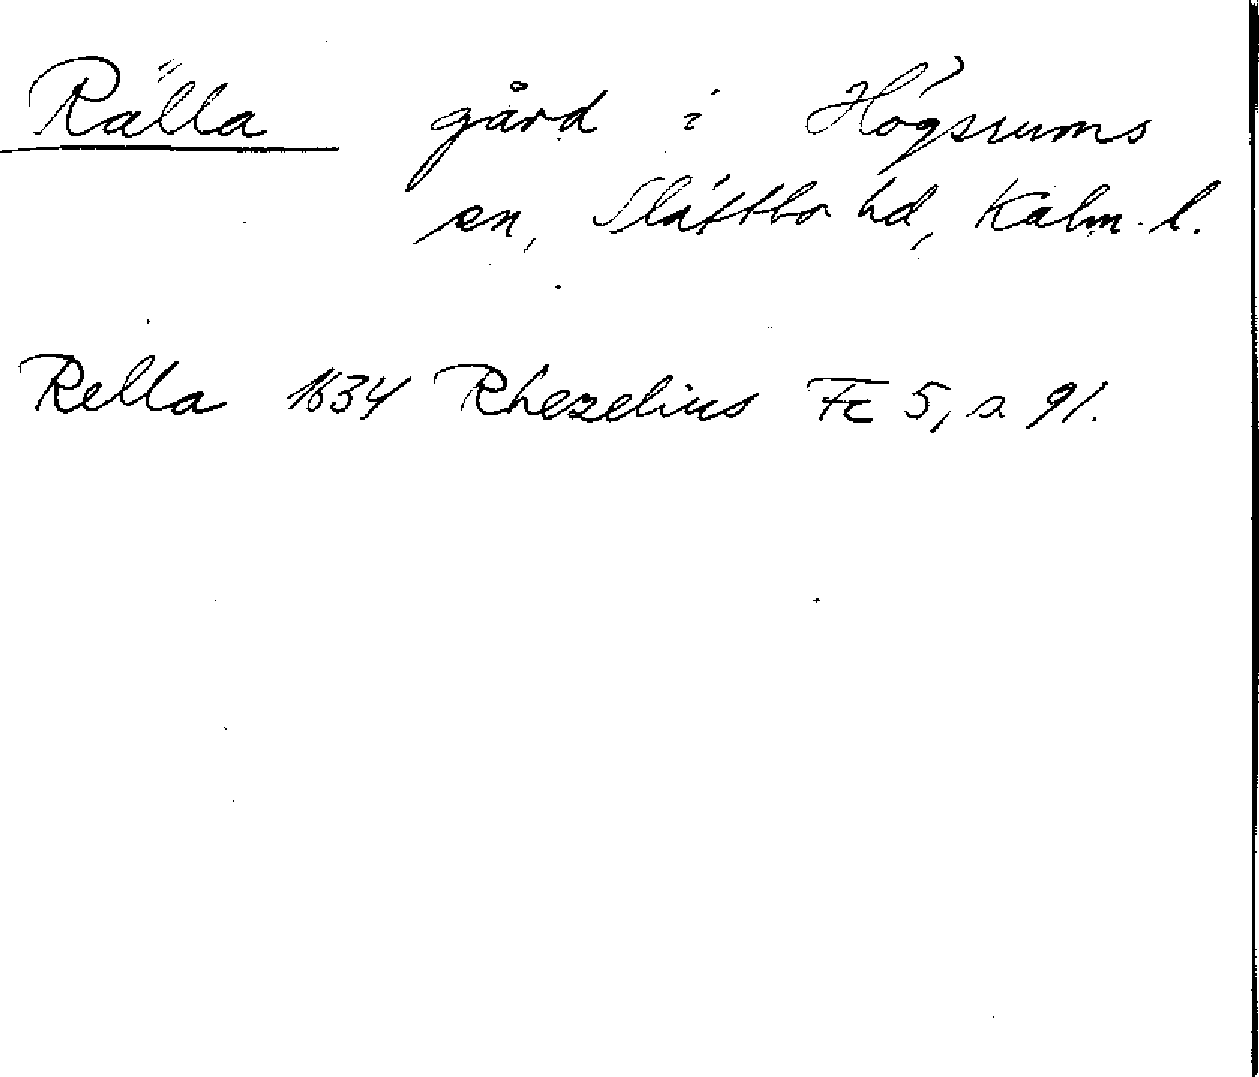 Rälla gård i Högsrums
sn, Slättbo hd, Kalm. l.
Rella 1634 Rhezelius Fc 5, s 91.